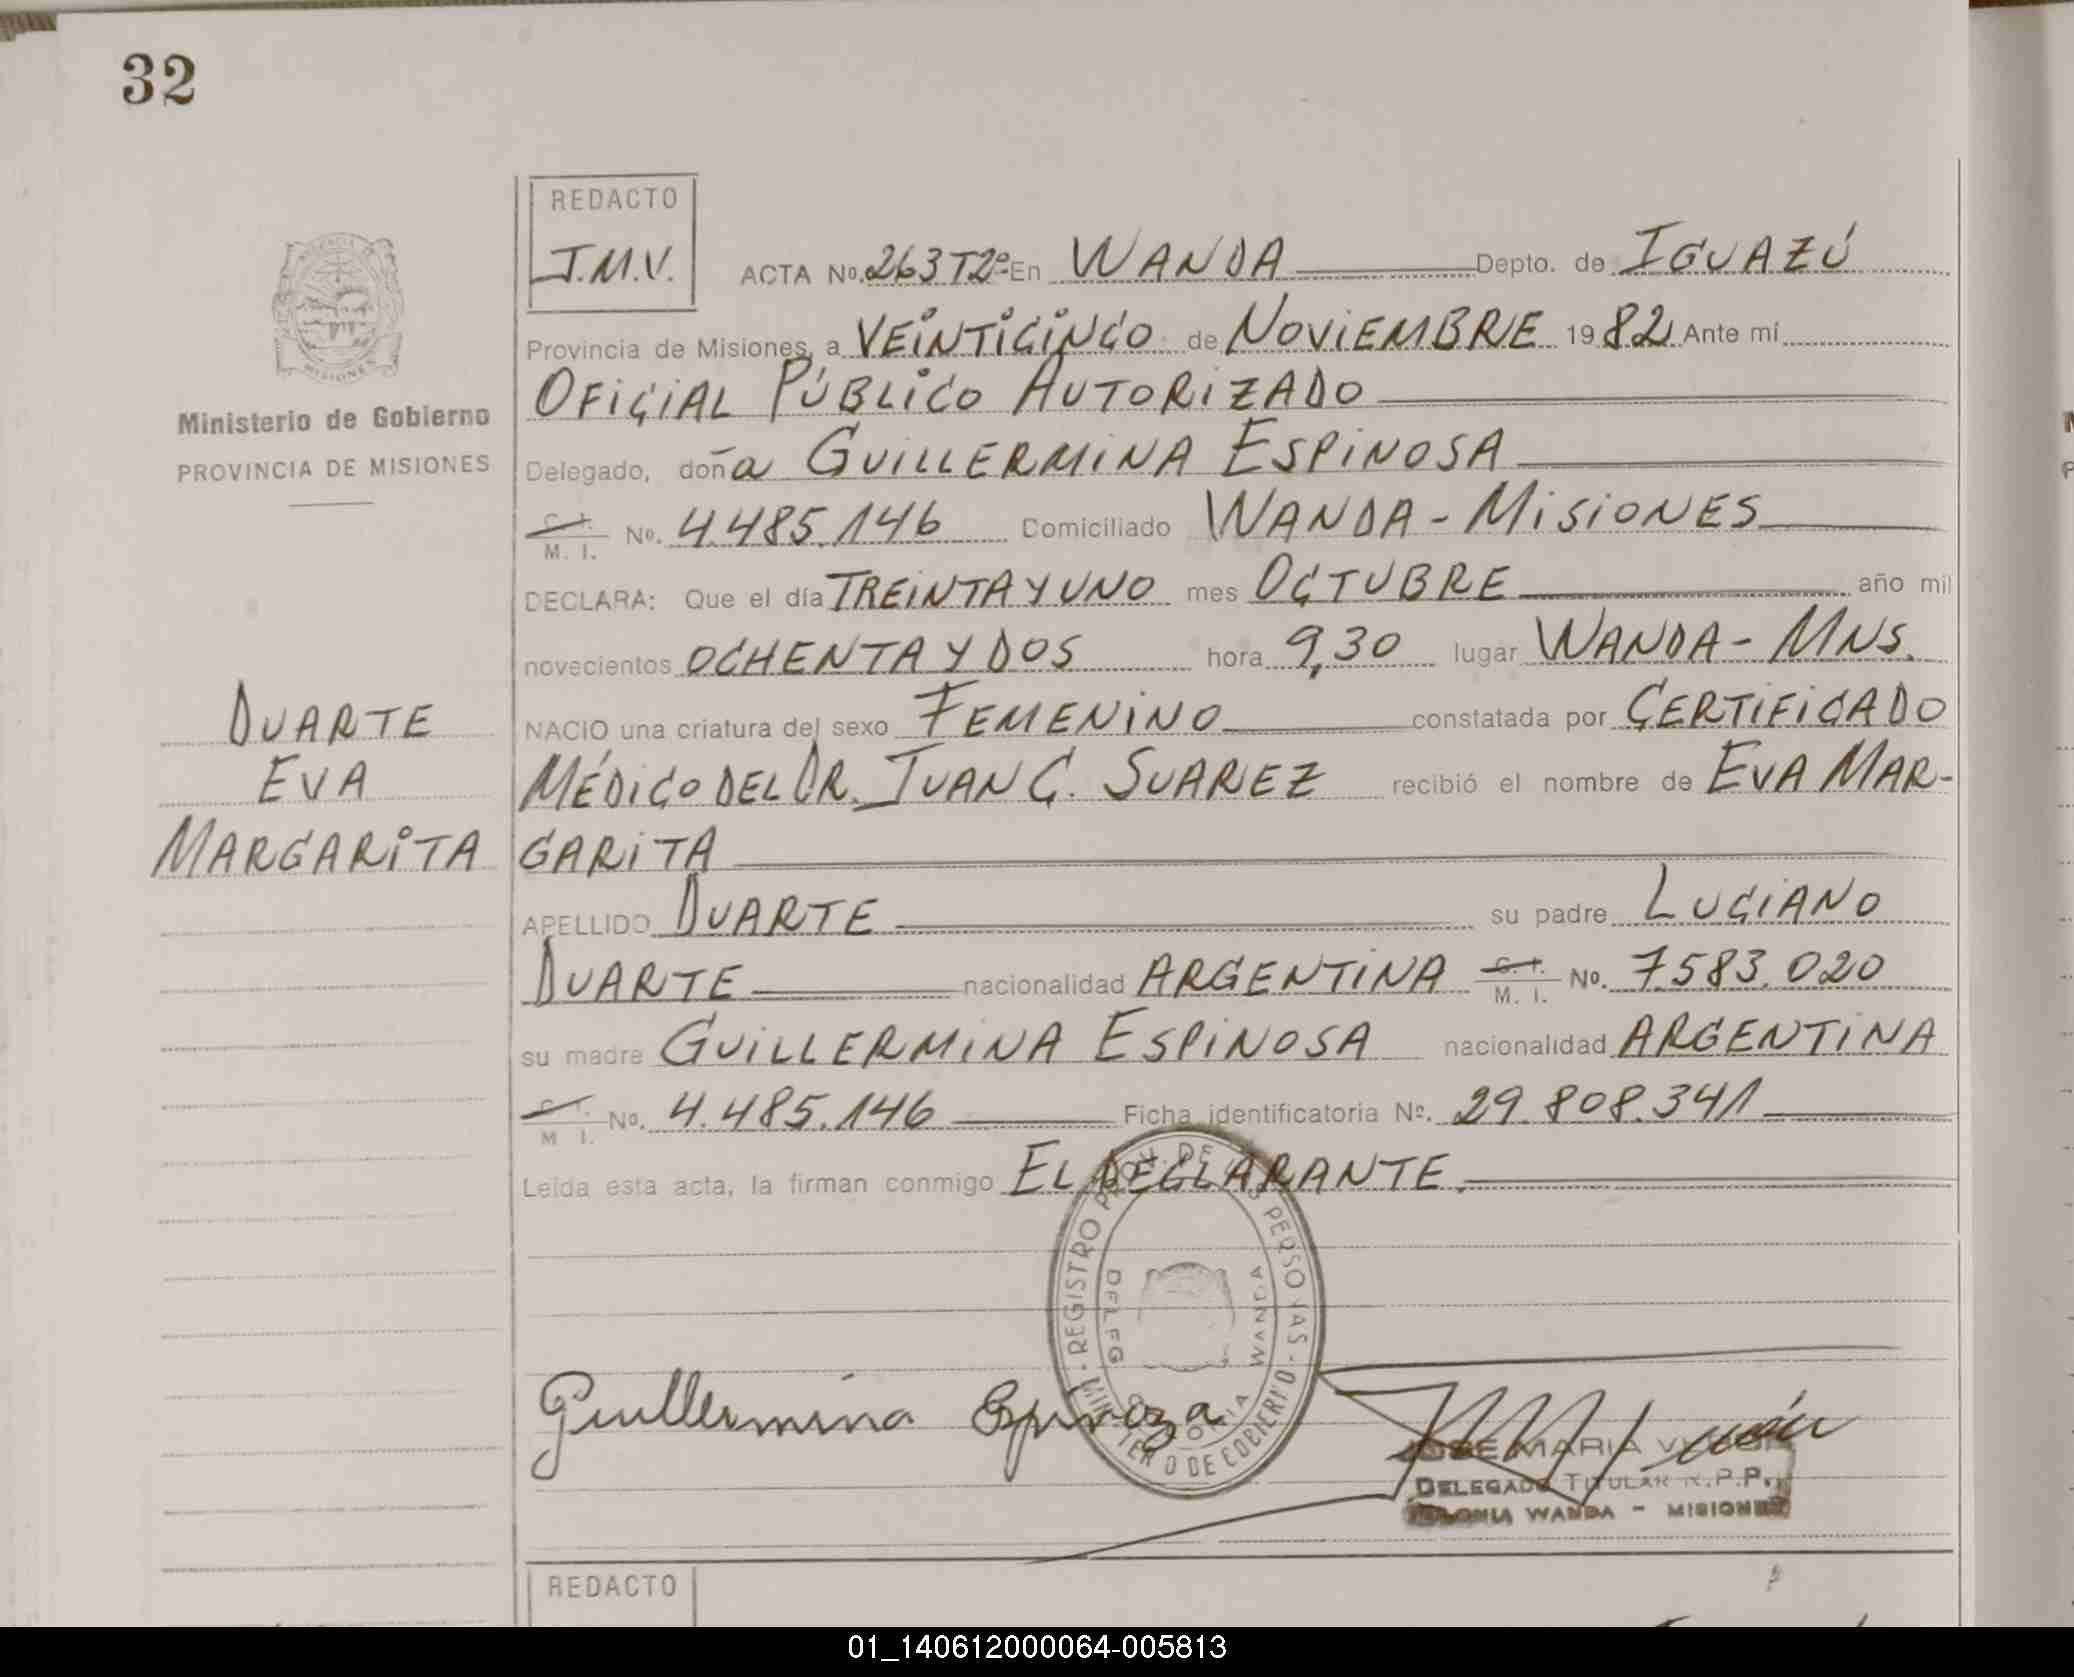 32
REDACTO
J.M.V.
ACTA No. 263 T2º En WANDA Depto. de IGUAZÚ
Provincia de Misiones, a VEINTICINCO de NOVIEMBRE 1982 Ante mí
OFICIAL PÚBLICO AUTORIZADO
Ministerio de Gobierno
PROVINCIA DE MISIONES
Delegado, doña GUILLERMINA ESPINOSA
C. I. M. I. No. 4.485.146 Domiciliado WANDA - MISIONES
DECLARA: Que el día TREINTA Y UNO mes OCTUBRE año mil
novecientos OCHENTA Y DOS hora 9,30 lugar WANDA - MNS.
DUARTE
EVA
MARGARITA
NACIO una criatura del sexo FEMENINO constatada por CERTIFICADO
MÉDICO DEL DR. JUAN C. SUAREZ recibió el nombre de EVA MAR-
GARITA
APELLIDO DUARTE su padre LUCIANO
DUARTE nacionalidad ARGENTINA C. I. M. I. No. 7.583.020
su madre GUILLERMINA ESPINOSA nacionalidad ARGENTINA
C. I. M. I. No. 4.485.146 Ficha identificatoria No. 29.808.341
Leída esta acta, la firman conmigo EL DECLARANTE.
REGISTRO PROV. DE LAS PERSONAS
DELEG WANDA
MINISTERIO DE GOBIERNO
Guillermina Espinoza
JOSE MARIA
DELEGADO TITULAR R.P.P.
COLONIA WANDA - MISIONES
REDACTO
01_140612000064-005813